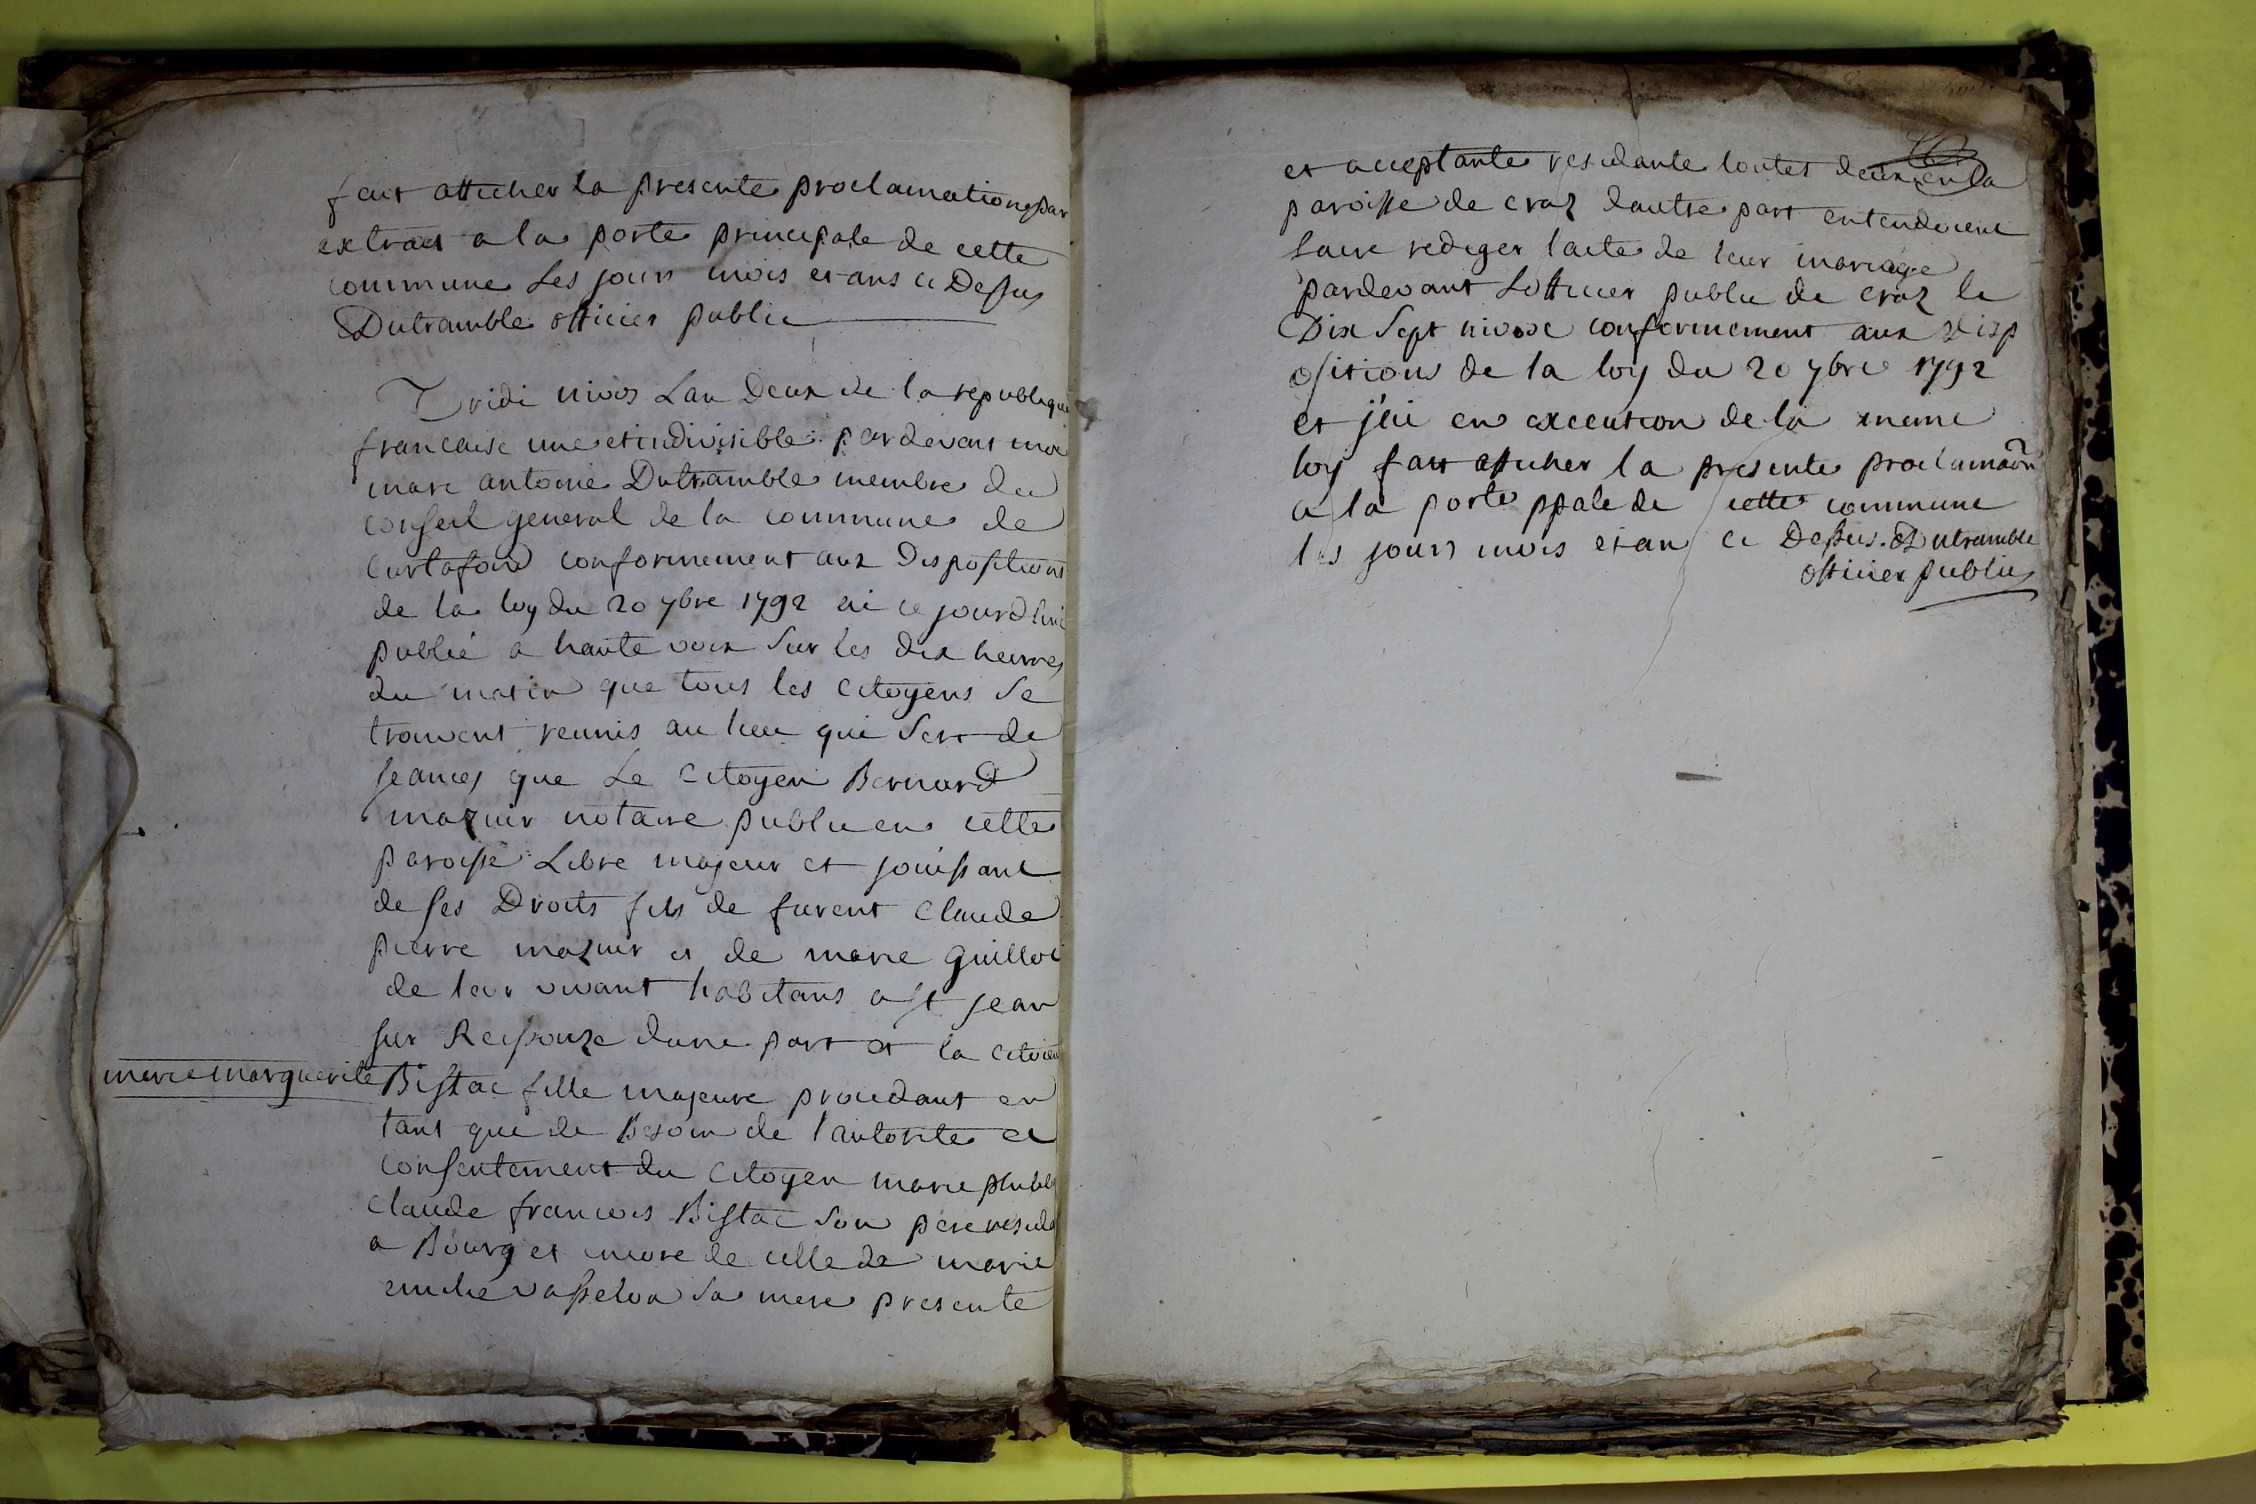 fait afficher la presente proclamation par
extrait a la porte principale de cette
commune Les jours mois et ans ci Dessus
Dutramble officier public
Tridi nivos Lan Deux de la republique
francaise une et indivisible pardevant moi
marc antoine Dutramble membre du
conseil general de la commune de
Curtafond conformement aux Dispositions
de la loy du 20 7bre 1792 ai ce jourdhui
publié a haute voix Sur les dix heures
du matin que tous les citoyens Se
trouvent reunis au lieu qui Sert de
seances que Le Citoyen Bernard
mazuir notaire public en cette
paroisse Libre majeur et jouissant
de ses Droits fils de furent Claude
pierre mazuir et de marie guillot
de leur vivant habitans a st jean
sur Reissouze dune part et la citoien
marie marguerite
Bistac fille majeure procedant en
tant que de Besoin de lautorite et
consentement du Citoyen marie philib
Claude francois Bistac Son pere resida
a Bourg et encore de celle de marie
emilie vasselon Sa mere presente
et acceptante residante toutes deux en la
paroisse de craz dautre part entendoient
faire rediger lacte de leur mariage
pardevant Lofficier public de craz le
Dix Sept nivose conformement aux disp
ositions de la loy du 20 7bre 1792
et jai en execution de la meme
loy fait afficher la presente proclamaõn
a la porte ppale de cette commune
les jours mois et an ci Dessus. Dutramble
officier public